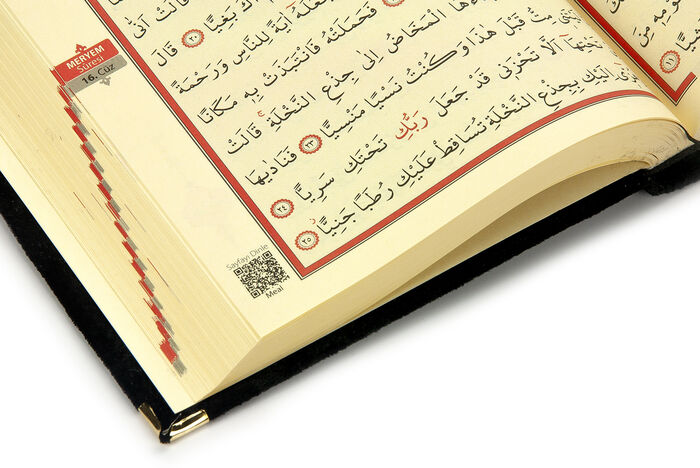 MERYEM
Sûresi
16. Cüz
قَالَتْ اَنّٰى
بَغِيًّا ﴿٢٠﴾ قَالَ
اٰيَةً لِلنَّاسِ وَرَحْمَةً
فَحَمَلَتْهُ فَانْتَبَذَتْ بِهٖ مَكَانًا
الْمَخَاضُ اِلٰى جِذْعِ النَّخْلَةِۚ قَالَتْ
مِتُّ قَبْلَ هٰذَا وَكُنْتُ نَسْيًا مَنْسِيًّا ﴿٢٣﴾ فَنَادٰيهَا
تَحْتِهَٓا اَلَّا تَحْزَنٖي قَدْ جَعَلَ رَبُّكِ تَحْتَكِ سَرِيًّا ﴿٢٤﴾
اِلَيْكِ بِجِذْعِ النَّخْلَةِ تُسَاقِطْ عَلَيْكِ رُطَبًا جَنِيًّاۘ ﴿٢٥﴾
Sayfayı Dinle
Meal
مِنَ
﴿١١﴾